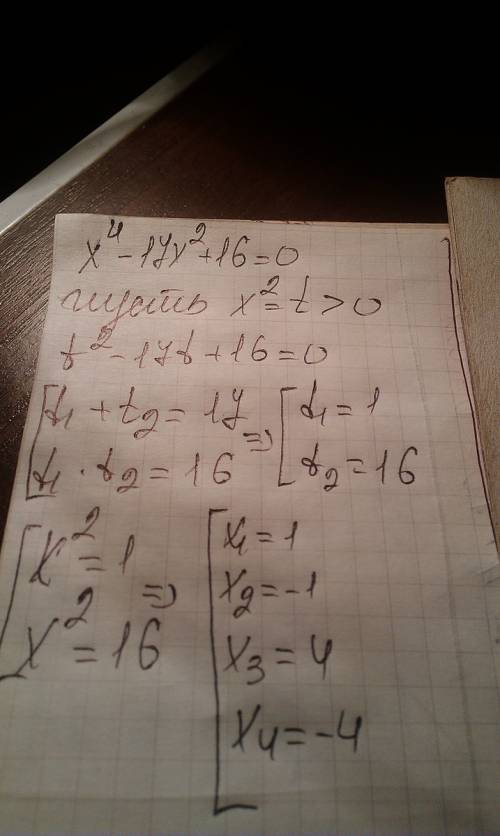 x⁴ - 17x² + 16 = 0
пусть x² = t > 0
t² - 17t + 16 = 0
[ t₁ + t₂ = 17 => [ t₁ = 1
t₁ · t₂ = 16 t₂ = 16
[ x² = 1 => [ x₁ = 1
x² = 16 x₂ = -1
x₃ = 4
x₄ = -4